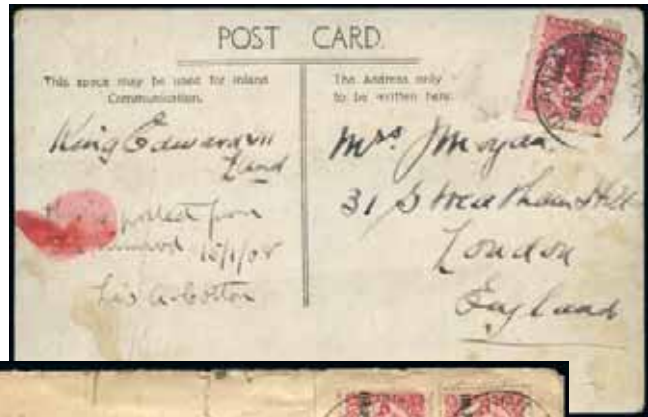 POST CARD.
This space may be used for Inland
Communication.
The Address only
to be written here.
King Edward VII
Land
posted from
15/1/08
Mrs J Morgan
31 Streatham Hill
London
England